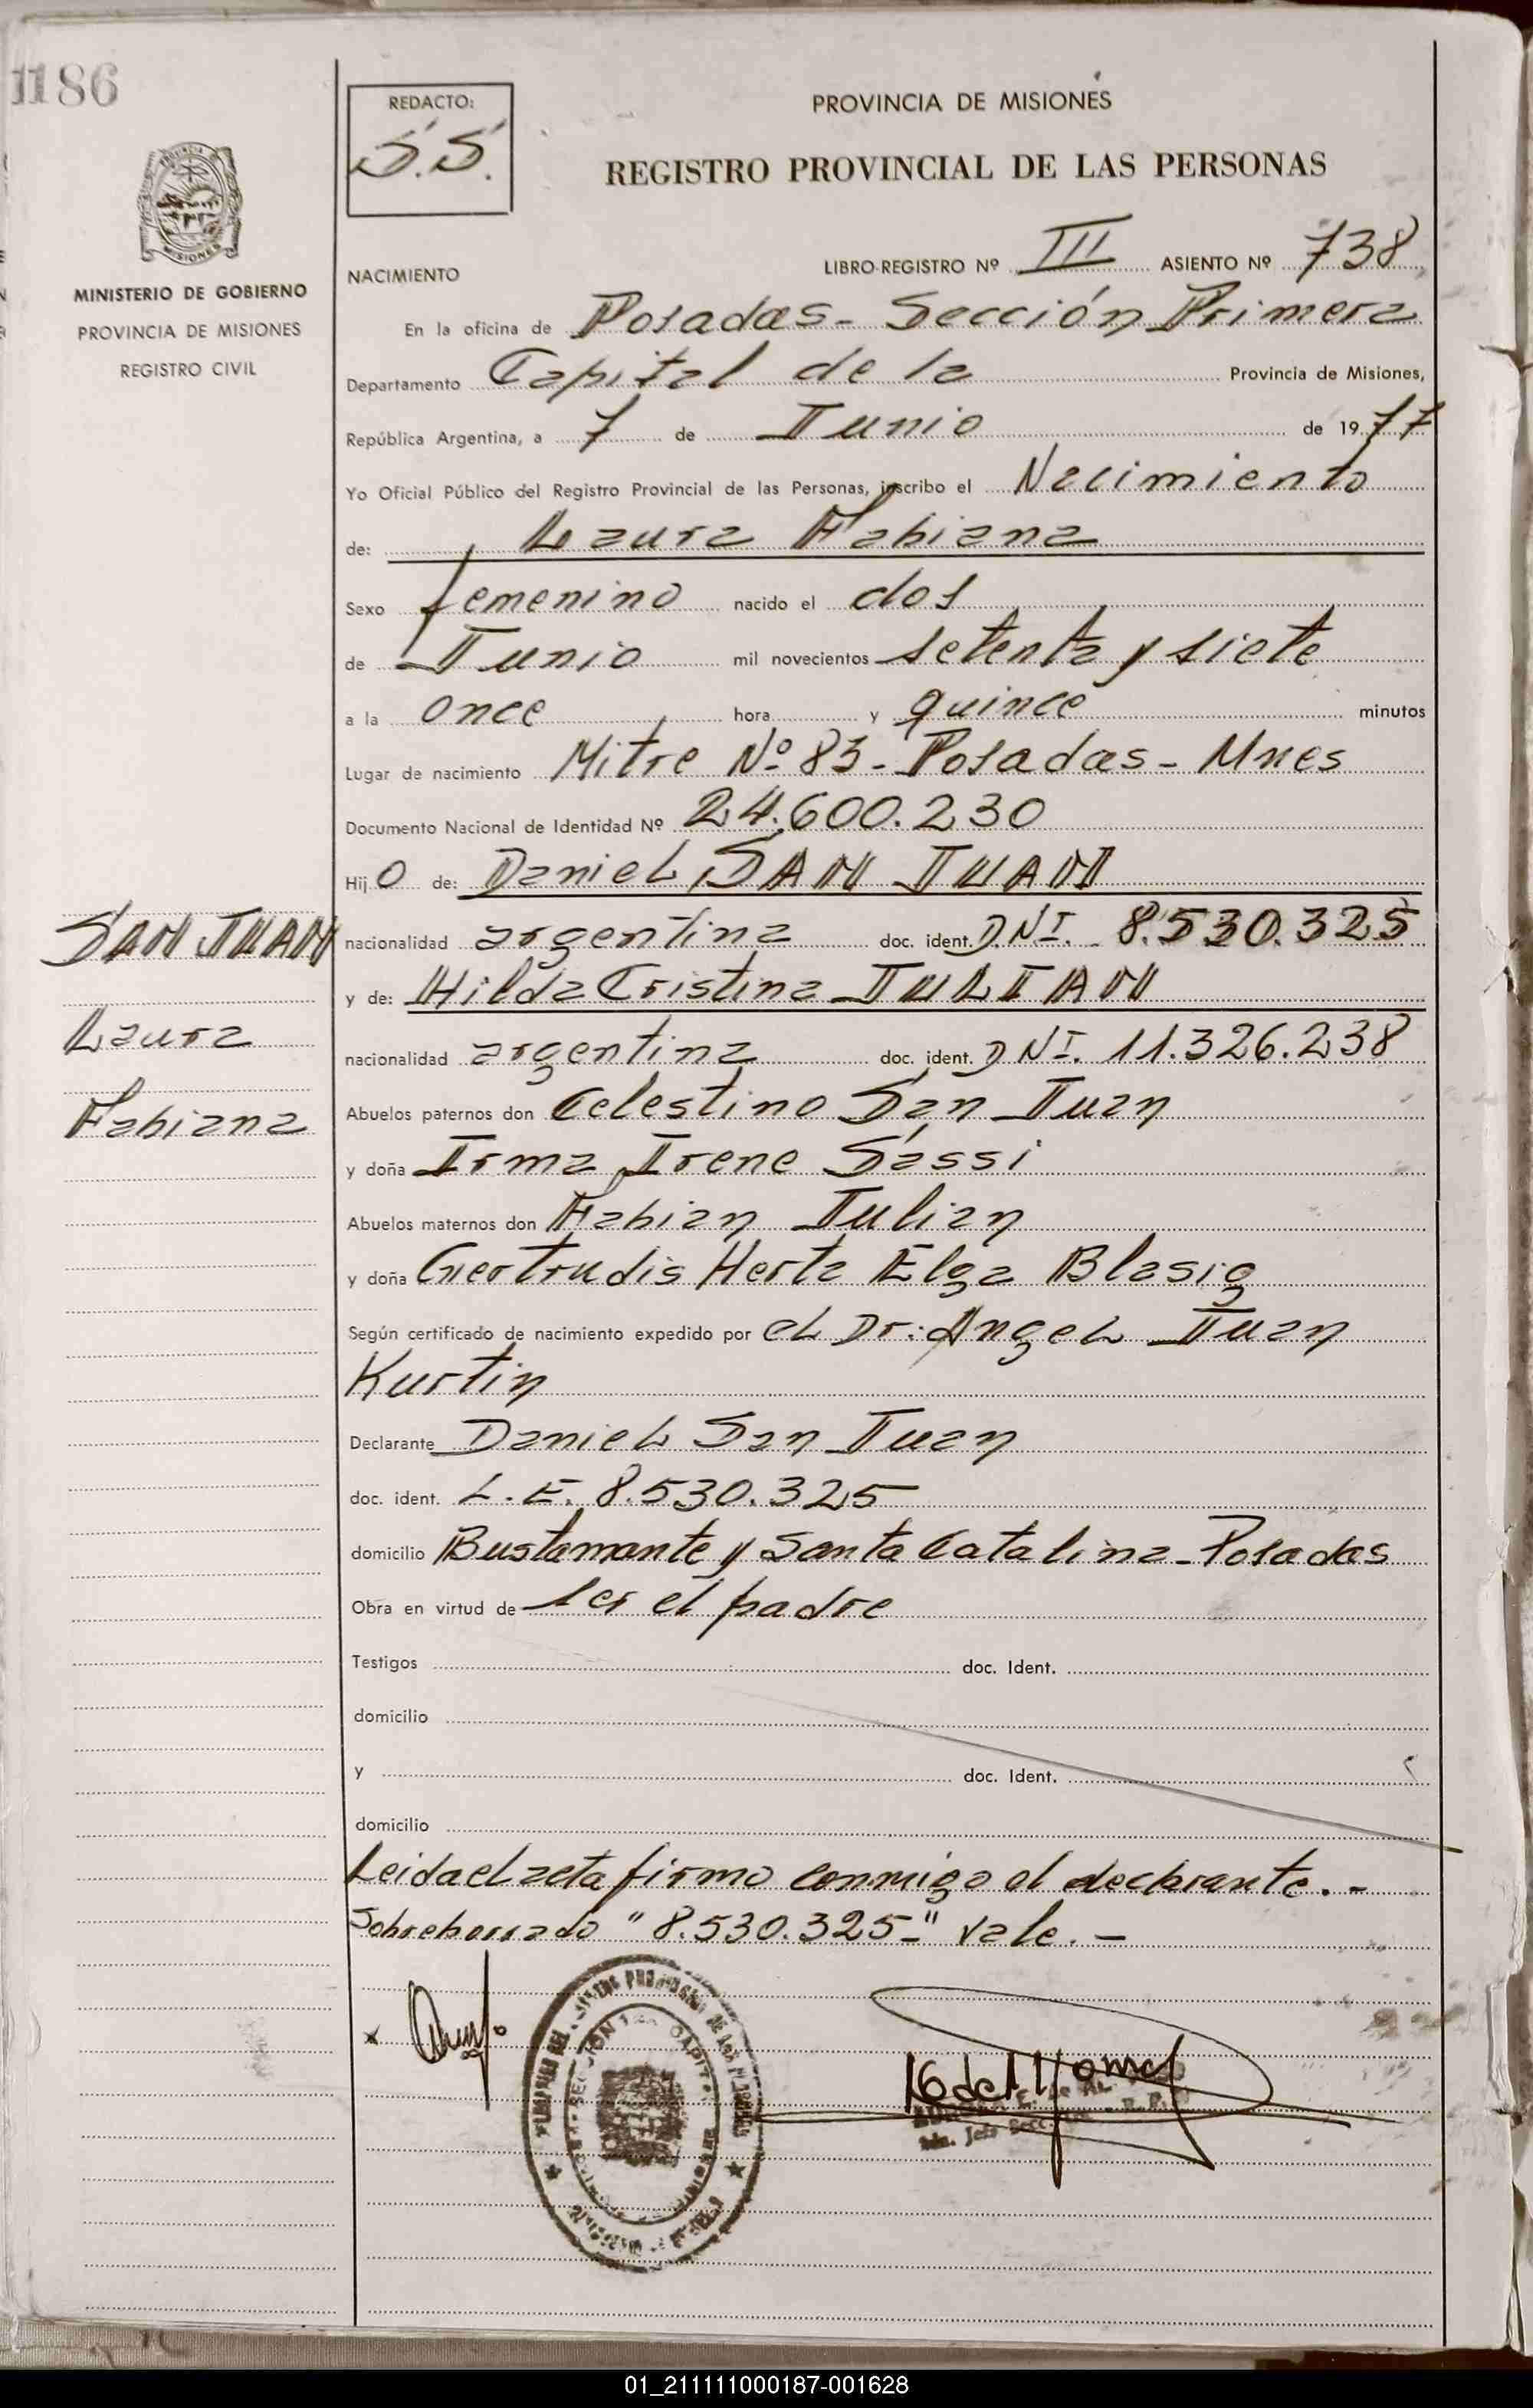 1186
REDACTO:
S.S.
PROVINCIA DE MISIONES
REGISTRO PROVINCIAL DE LAS PERSONAS
MISIONES
MINISTERIO DE GOBIERNO
PROVINCIA DE MISIONES
REGISTRO CIVIL
LIBRO-REGISTRO Nº III ASIENTO Nº 738
NACIMIENTO
En la oficina de Posadas - Sección Primera
Departamento Capital de la Provincia de Misiones,
República Argentina, a 7 de Junio de 1977
Yo Oficial Público del Registro Provincial de las Personas, inscribo el Nacimiento
de: Laura Fabiana
Sexo femenino nacido el dos
de Junio mil novecientos setenta y siete
a la once hora y quince minutos
Lugar de nacimiento Mitre Nº 83 - Posadas - Mnes
Documento Nacional de Identidad Nº 24.600.230
Hijo de: Daniel SAN JUAN
SAN JUAN
nacionalidad argentina doc. ident. D.N.I. - 8.530.325
y de: Hilda Cristina JULIAN
Laura
nacionalidad argentina doc. ident. DNI. 11.326.238
Fabiana
Abuelos paternos don Celestino San Juan
y doña Irma Irene Sassi
Abuelos maternos don Fabian Julian
y doña Gertrudis Herta Elga Blasig
Según certificado de nacimiento expedido por el Dr: Angel Juan
Kurtin
Declarante Daniel San Juan
doc. ident. L.E. 8.530.325
domicilio Bustamante y Santa Catalina - Posadas
Obra en virtud de ser el padre
Testigos doc. Ident.
domicilio
y doc. Ident.
domicilio
Leida el acta firmo conmigo el declarante. -
Sobreborrado "8.530.325-" vale. -
01_211111000187-001628